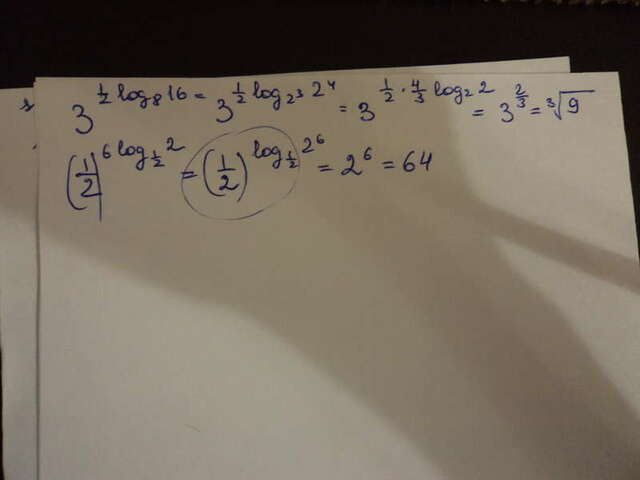 3^{\frac{1}{2} log_8 16} = 3^{\frac{1}{2} log_{2^3} 2^4} = 3^{\frac{1}{2} \cdot \frac{4}{3} log_2 2} = 3^{\frac{2}{3}} = \sqrt[3]{9}
(\frac{1}{2})^{6 log_{\frac{1}{2}} 2} = (\frac{1}{2})^{log_{\frac{1}{2}} 2^6} = 2^6 = 64